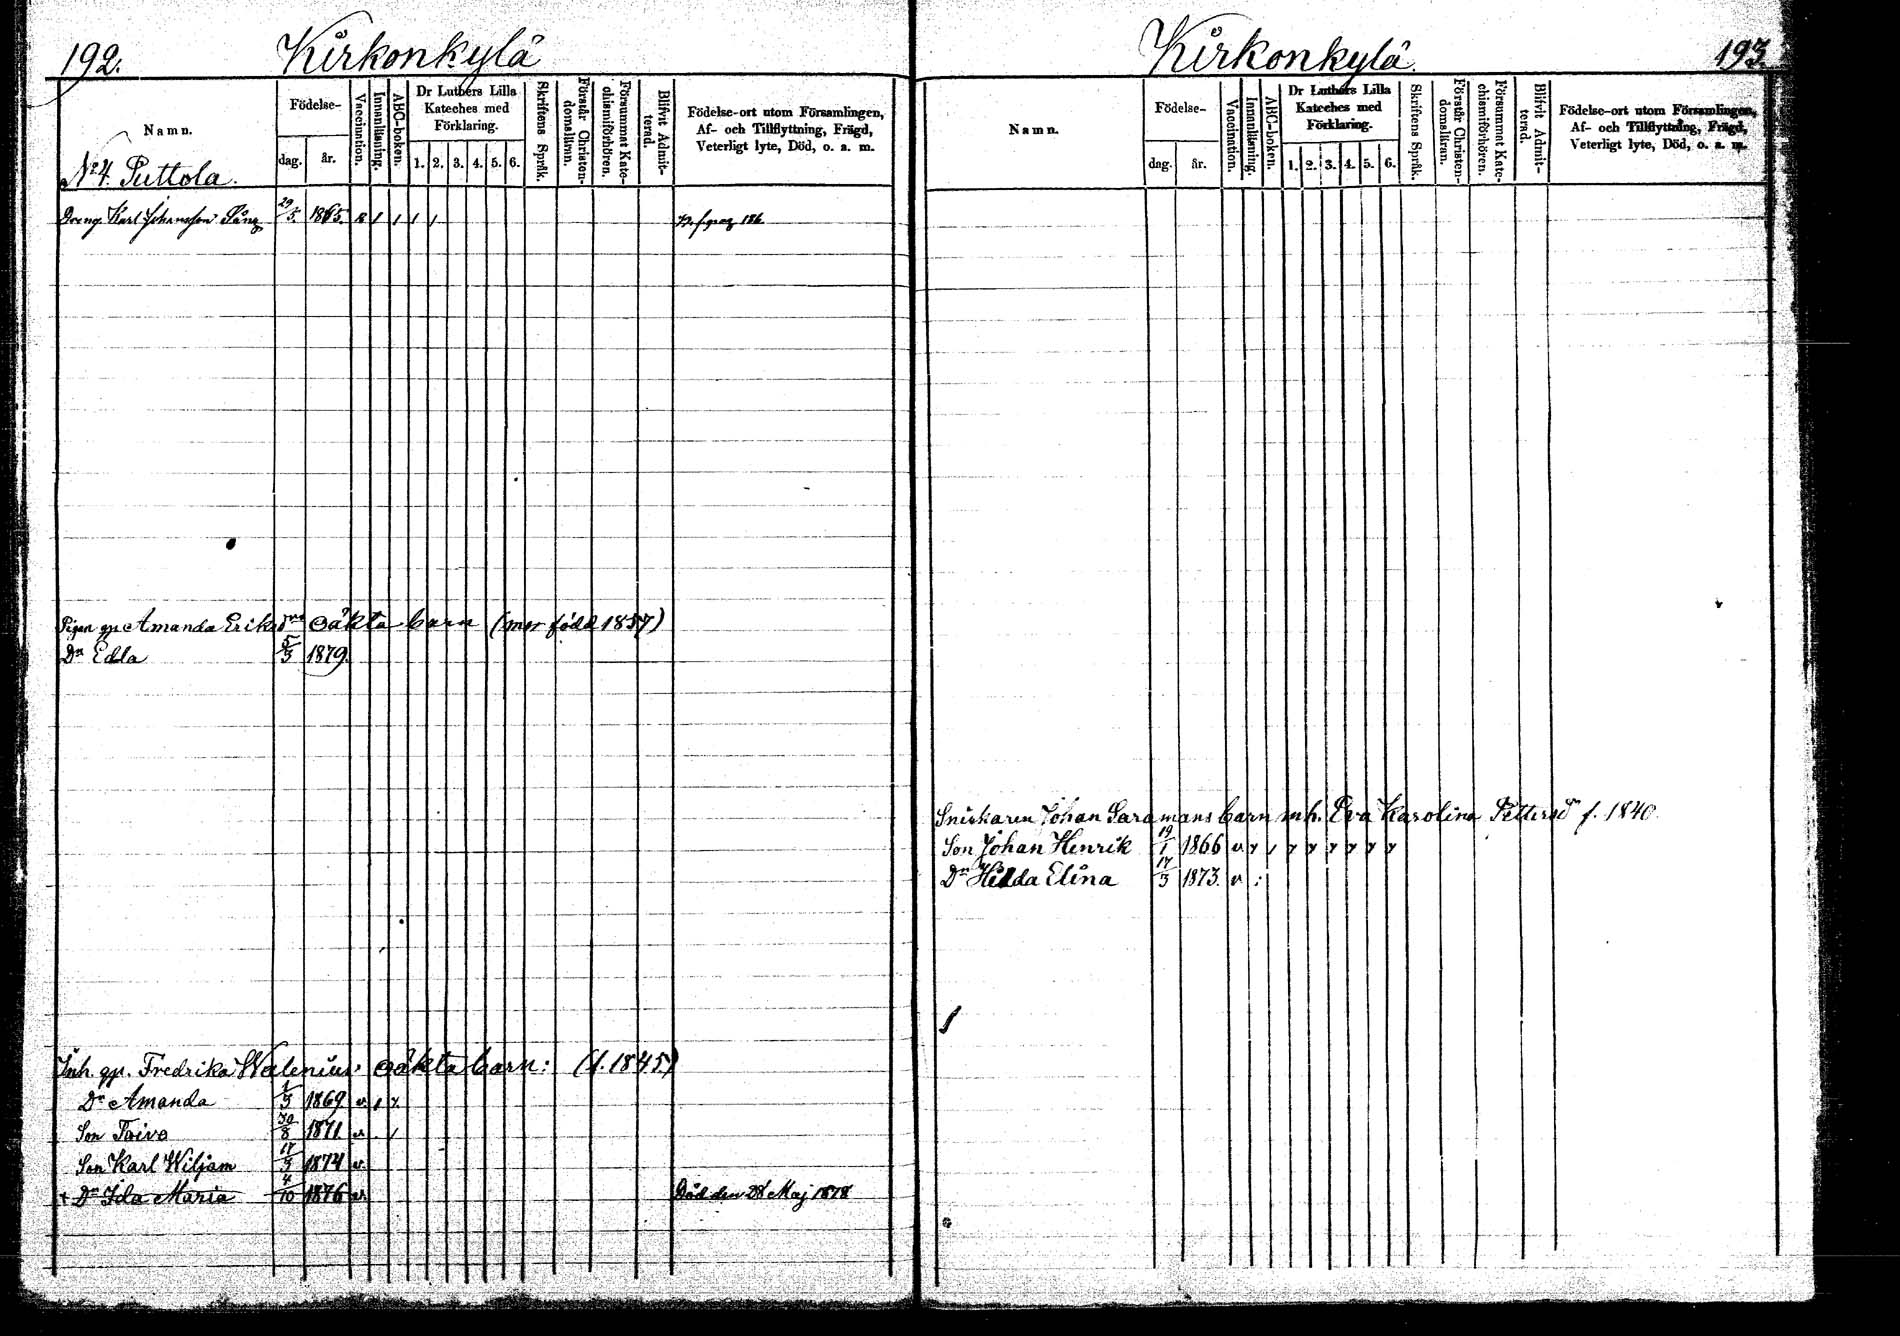 192. Kirkonkylä
Namn.
Födelse-
dag. år.
Vaccination.
Innanläsning.
ABC-boken.
Dr Luthers Lilla
Kateches med
Förklaring.
1. 2. 3. 4. 5. 6.
Skriftens Språk.
Förstår Christen-
domsläran.
Försummat Kate-
chismiförhören.
Blifvit Admit-
terad.
Födelse-ort utom Församlingen,
Af- och Tillflyttning, Frägd,
Veterligt lyte, Död, o. a. m.
No 4. Puttola.
Dreng. Karl Johansson 29/5. 1865.
Pigan gp Amanda Eriksdr oäkta barn (mor född 1857)
Dr Edla 5/3 1879.
Inh. gp. Fredrika Walenius oäkta barn: (f. 1845)
Dr Amanda 1/3 1869 v.
Son Toivo 30/8 1871 v.
Son Karl Wiljam 17/3 1874 v.
+ Dr Ida Maria 4/10 1876 v. Död den 28 Maj 1878
Kirkonkylä. 193.
Namn.
Födelse-
dag. år.
Vaccination.
Innanläsning.
ABC-boken.
Dr Luthers Lilla
Kateches med
Förklaring.
1. 2. 3. 4. 5. 6.
Skriftens Språk.
Förstår Christen-
domsläran.
Försummat Kate-
chismiförhören.
Blifvit Admit-
terad.
Födelse-ort utom Församlingen,
Af- och Tillflyttning, Frägd,
Veterligt lyte, Död, o. a. m.
Snickaren Johan Saramans barn mh. Eva Karolina Pettersdr f. 1840.
Son Johan Henrik 19/1 1866 v
Dr Hilda Elina 17/3 1873. v